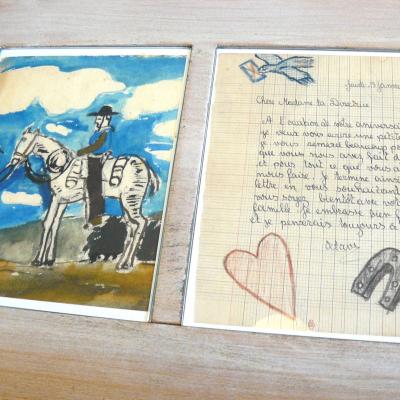 Jeudi 5 janvi
Chère Madame la Directrice
A l'occation de votre anniversai
je veux vous écrire une petite
je vous remercie beaucoup po
que vous nous avez fait d
et pour tout ce que vous a
nous faire. Je termine ainsi
lettre en vous souhaitant
vous soyez bientôt avec vot
famille. Je embrasse bien f
et je penserais toujours à
Octave